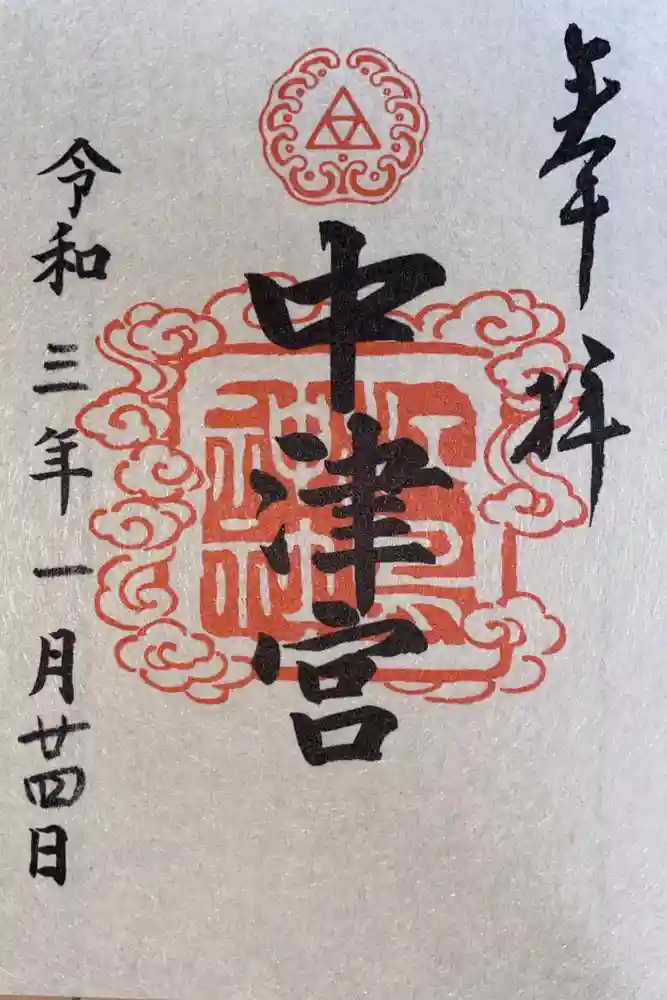 奉拝
中津宮
令和三年一月廿四日